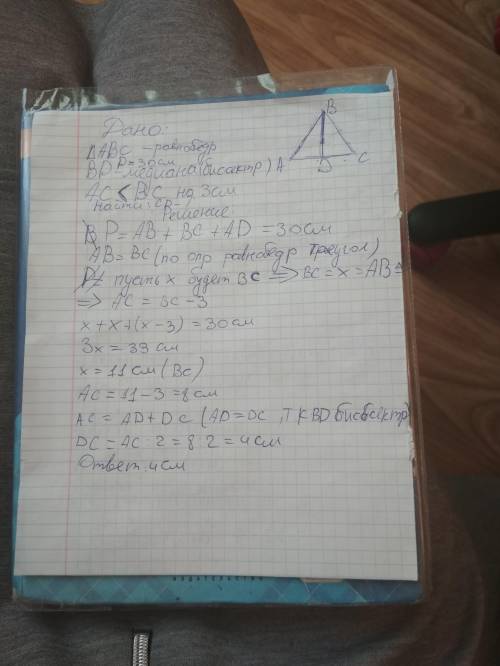 Дано:
B
ΔABC – равнобедр
P = 30 см
BD – медиана (бисектр)
A
D
C
AC < BC на 3 см
Найти:
Решение:
P = AB + BC + AD = 30 см
AB = BC (по опр равнобедр треугол)
пусть x будет BC ⟹ BC = x = AB ⟹
⟹ AC = BC – 3
x + x + (x – 3) = 30 см
3x = 33 см
x = 11 см (BC)
AC = 11 – 3 = 8 см
AC = AD + DC (AD = DC, т к BD бисектр)
DC = AC : 2 = 8 : 2 = 4 см
Ответ: 4 см
ИЗДАТЕЛЬСТВО